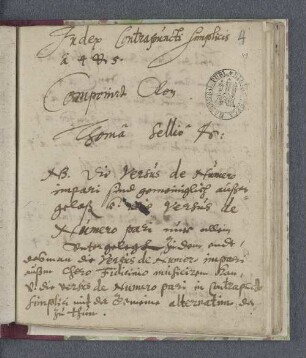 Index Contrapuncti simplicis 4
à 4 & 5.
Componirt
Thomâ Sellio
NB. Die Versus de Numero
impari sind gemeiniglich außen
gelaß die Versus de
Numero pari nur allein
untergelegt
man die Versus de Numero impari
Choro Fidicinio musiciren kan,
die versus de Numero pari in contrapuncto
simplici mit der Gemeine alternatim
zu thun.